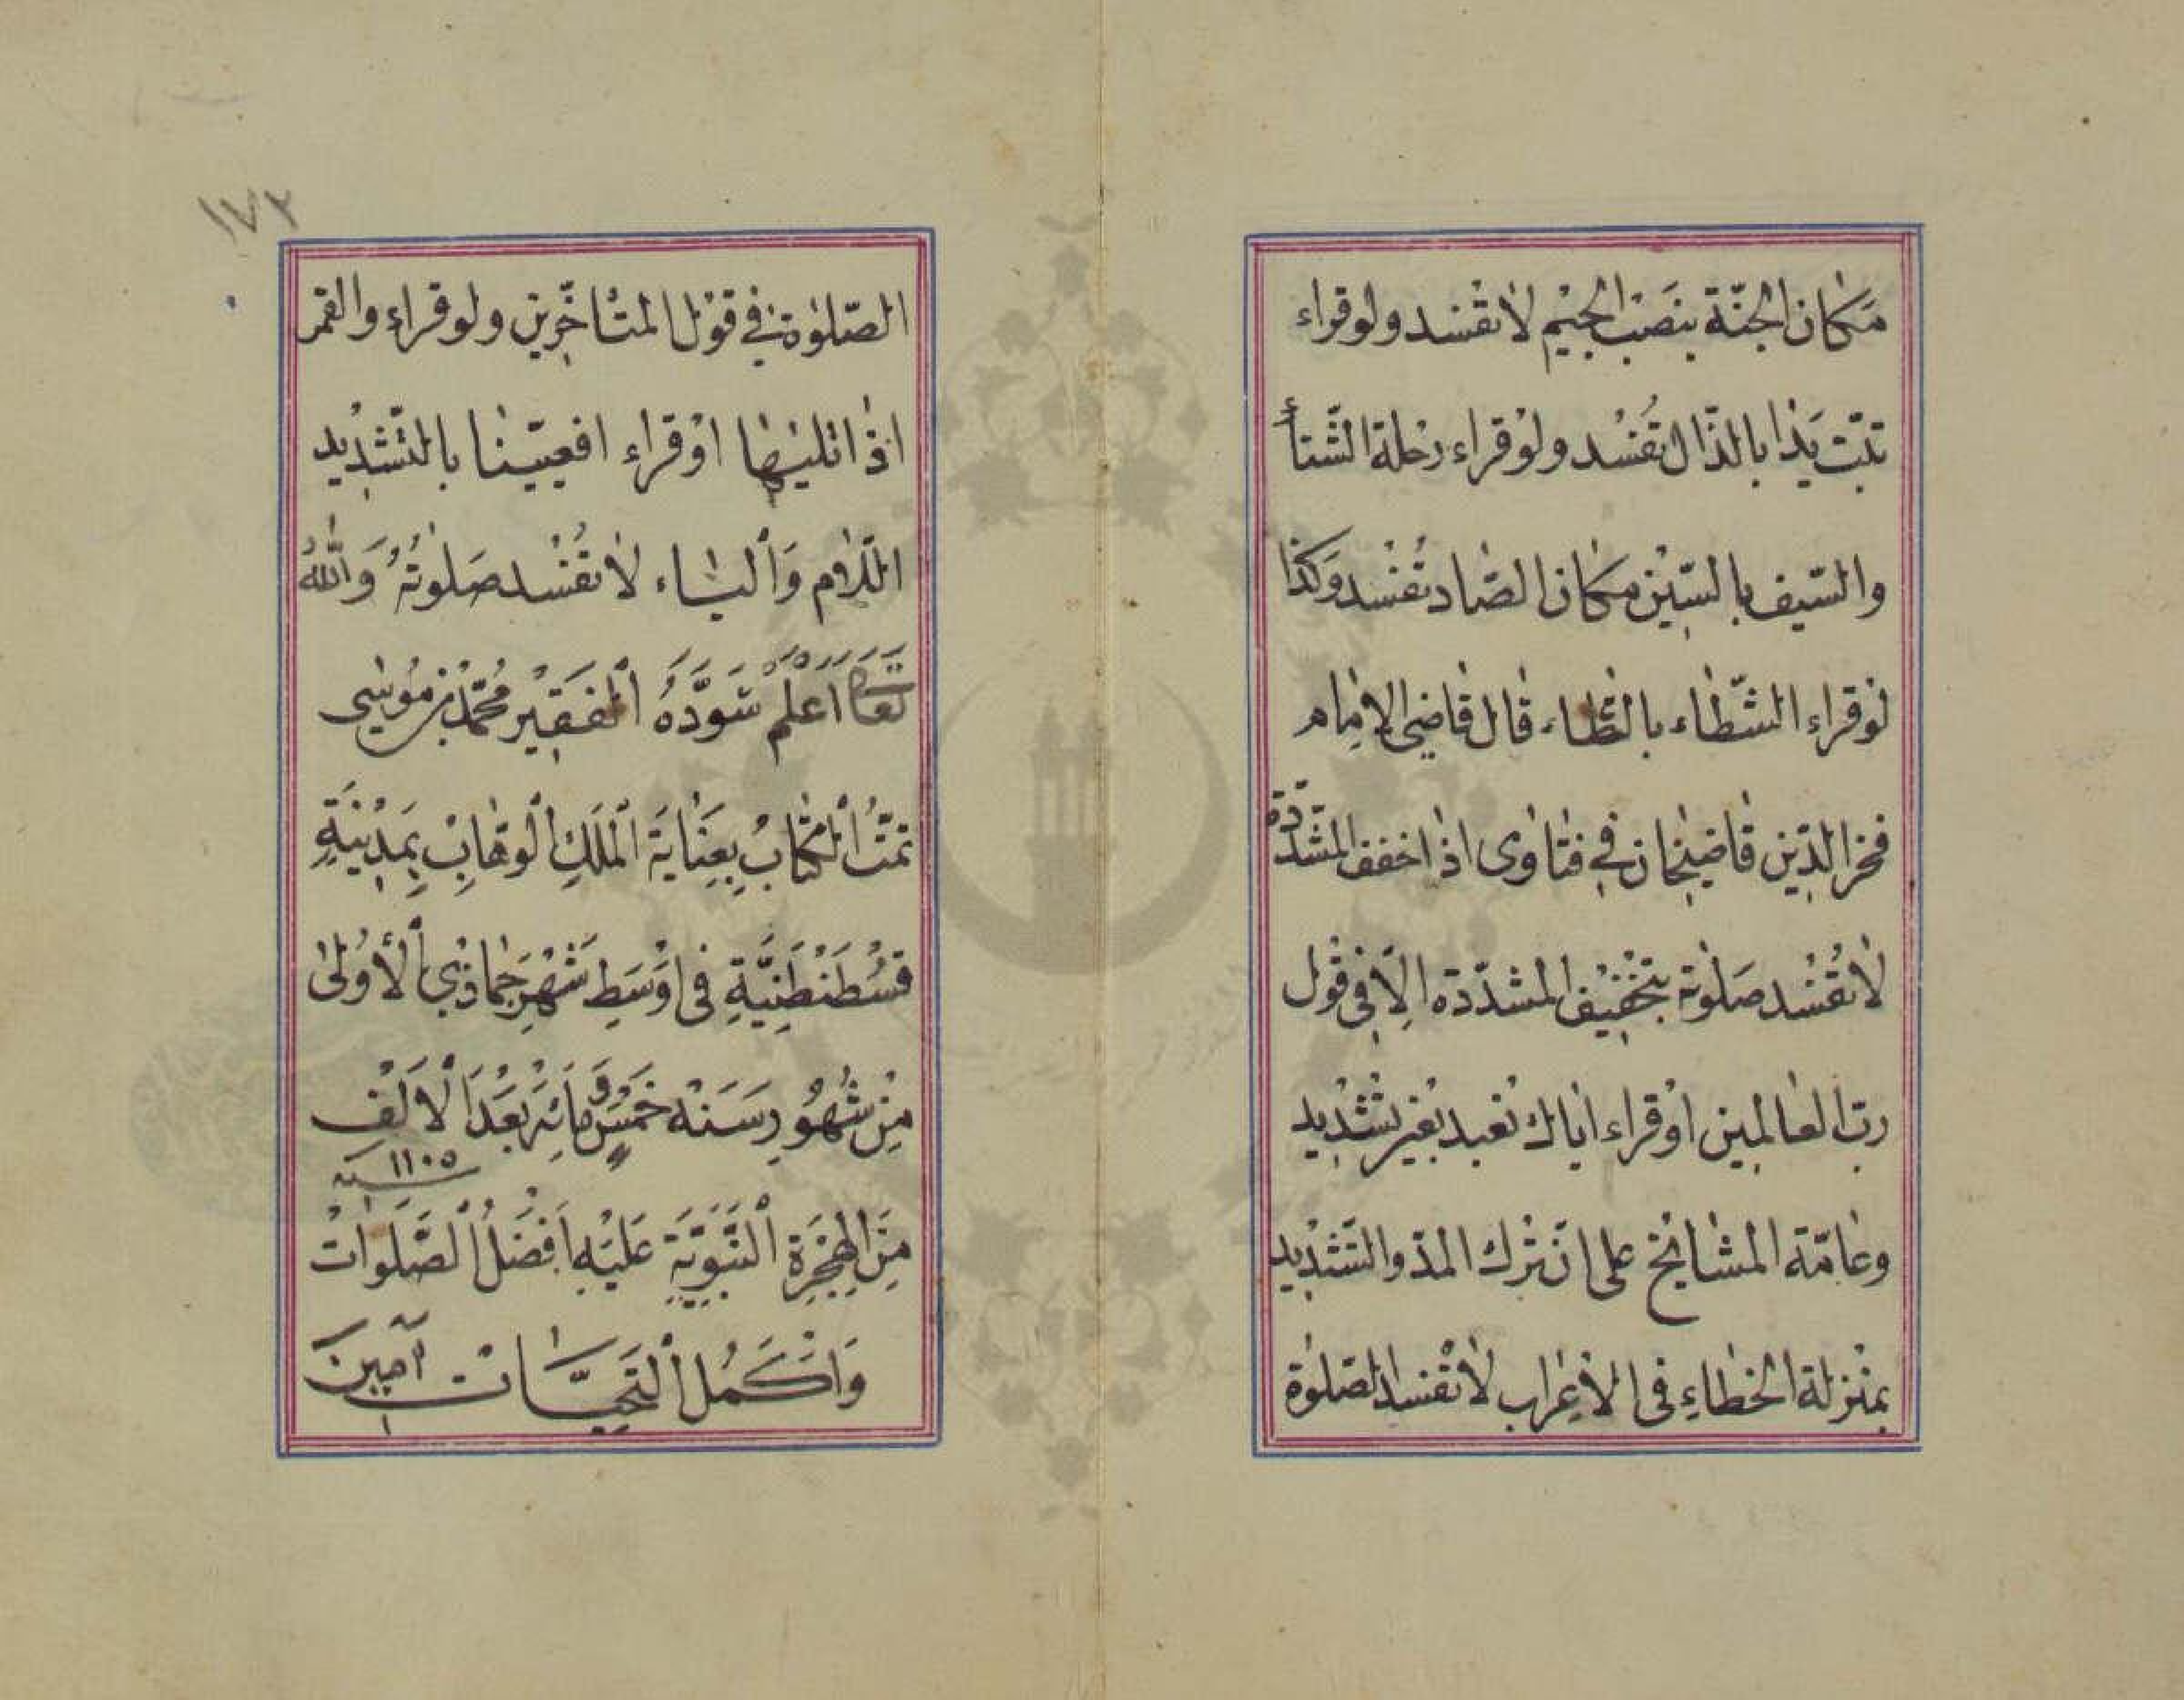 مكان الجنّة بنصب الجيم لا تفسد ولو قراء
تبّت يذا بالذّال تفسد ولو قراء رحلة الشّتاء
والسّيف بالسّين مكان الصّاد تفسد وكذا
لو قراء الشّطاء بالطّاء قال قاضى الامام
فخر الدّين قاضيخان فى فتاوى اذا خفف المشدّدة
لا تفسد صلوته بتخفيف المشدّدة الّا فى قول
ربّ العالمين او قراء اياك نعبد بغير تشديد
وعامّة المشايخ على ان ترك المدّ والتّشديد
بمنزلة الخطاء فى الاعراب لا تفسد الصّلوة
١٧٢
الصّلوة فى قول المتأخّرين ولو قراء والقمر
اذا تليٰها او قراء افعيّينا بالتّشديد
اللّام وَالياء لا تفسد صَلوتهُ وَاللّٰهُ
تعَالى اَعْلَمُ سَوَّدَهُ الفَقِيرُ مُحَمَّدْ بن مُوسٰى
تمَّتُ الكِتَابُ بِعِنَايَة المَلَكِ الوَهَّابِ بِمَدِينَةِ
قُسْطَنْطَنِيَّةِ فى اَوْسَطِ شَهْرِ جَمَاذِي الأُولىٰ
مِن شُهُورِ سَنَه خَمْسٍ وَمِائَة بَعْدَ الاَلْف
سنه ١١٠٥
مِنَ الهِجْرَةِ النَّبَوِيَّةِ عَلَيْهِ اَفْضَلُ الصَّلَواتْ
وَاَكْمَلُ التَّحِيَّاتْ آمين